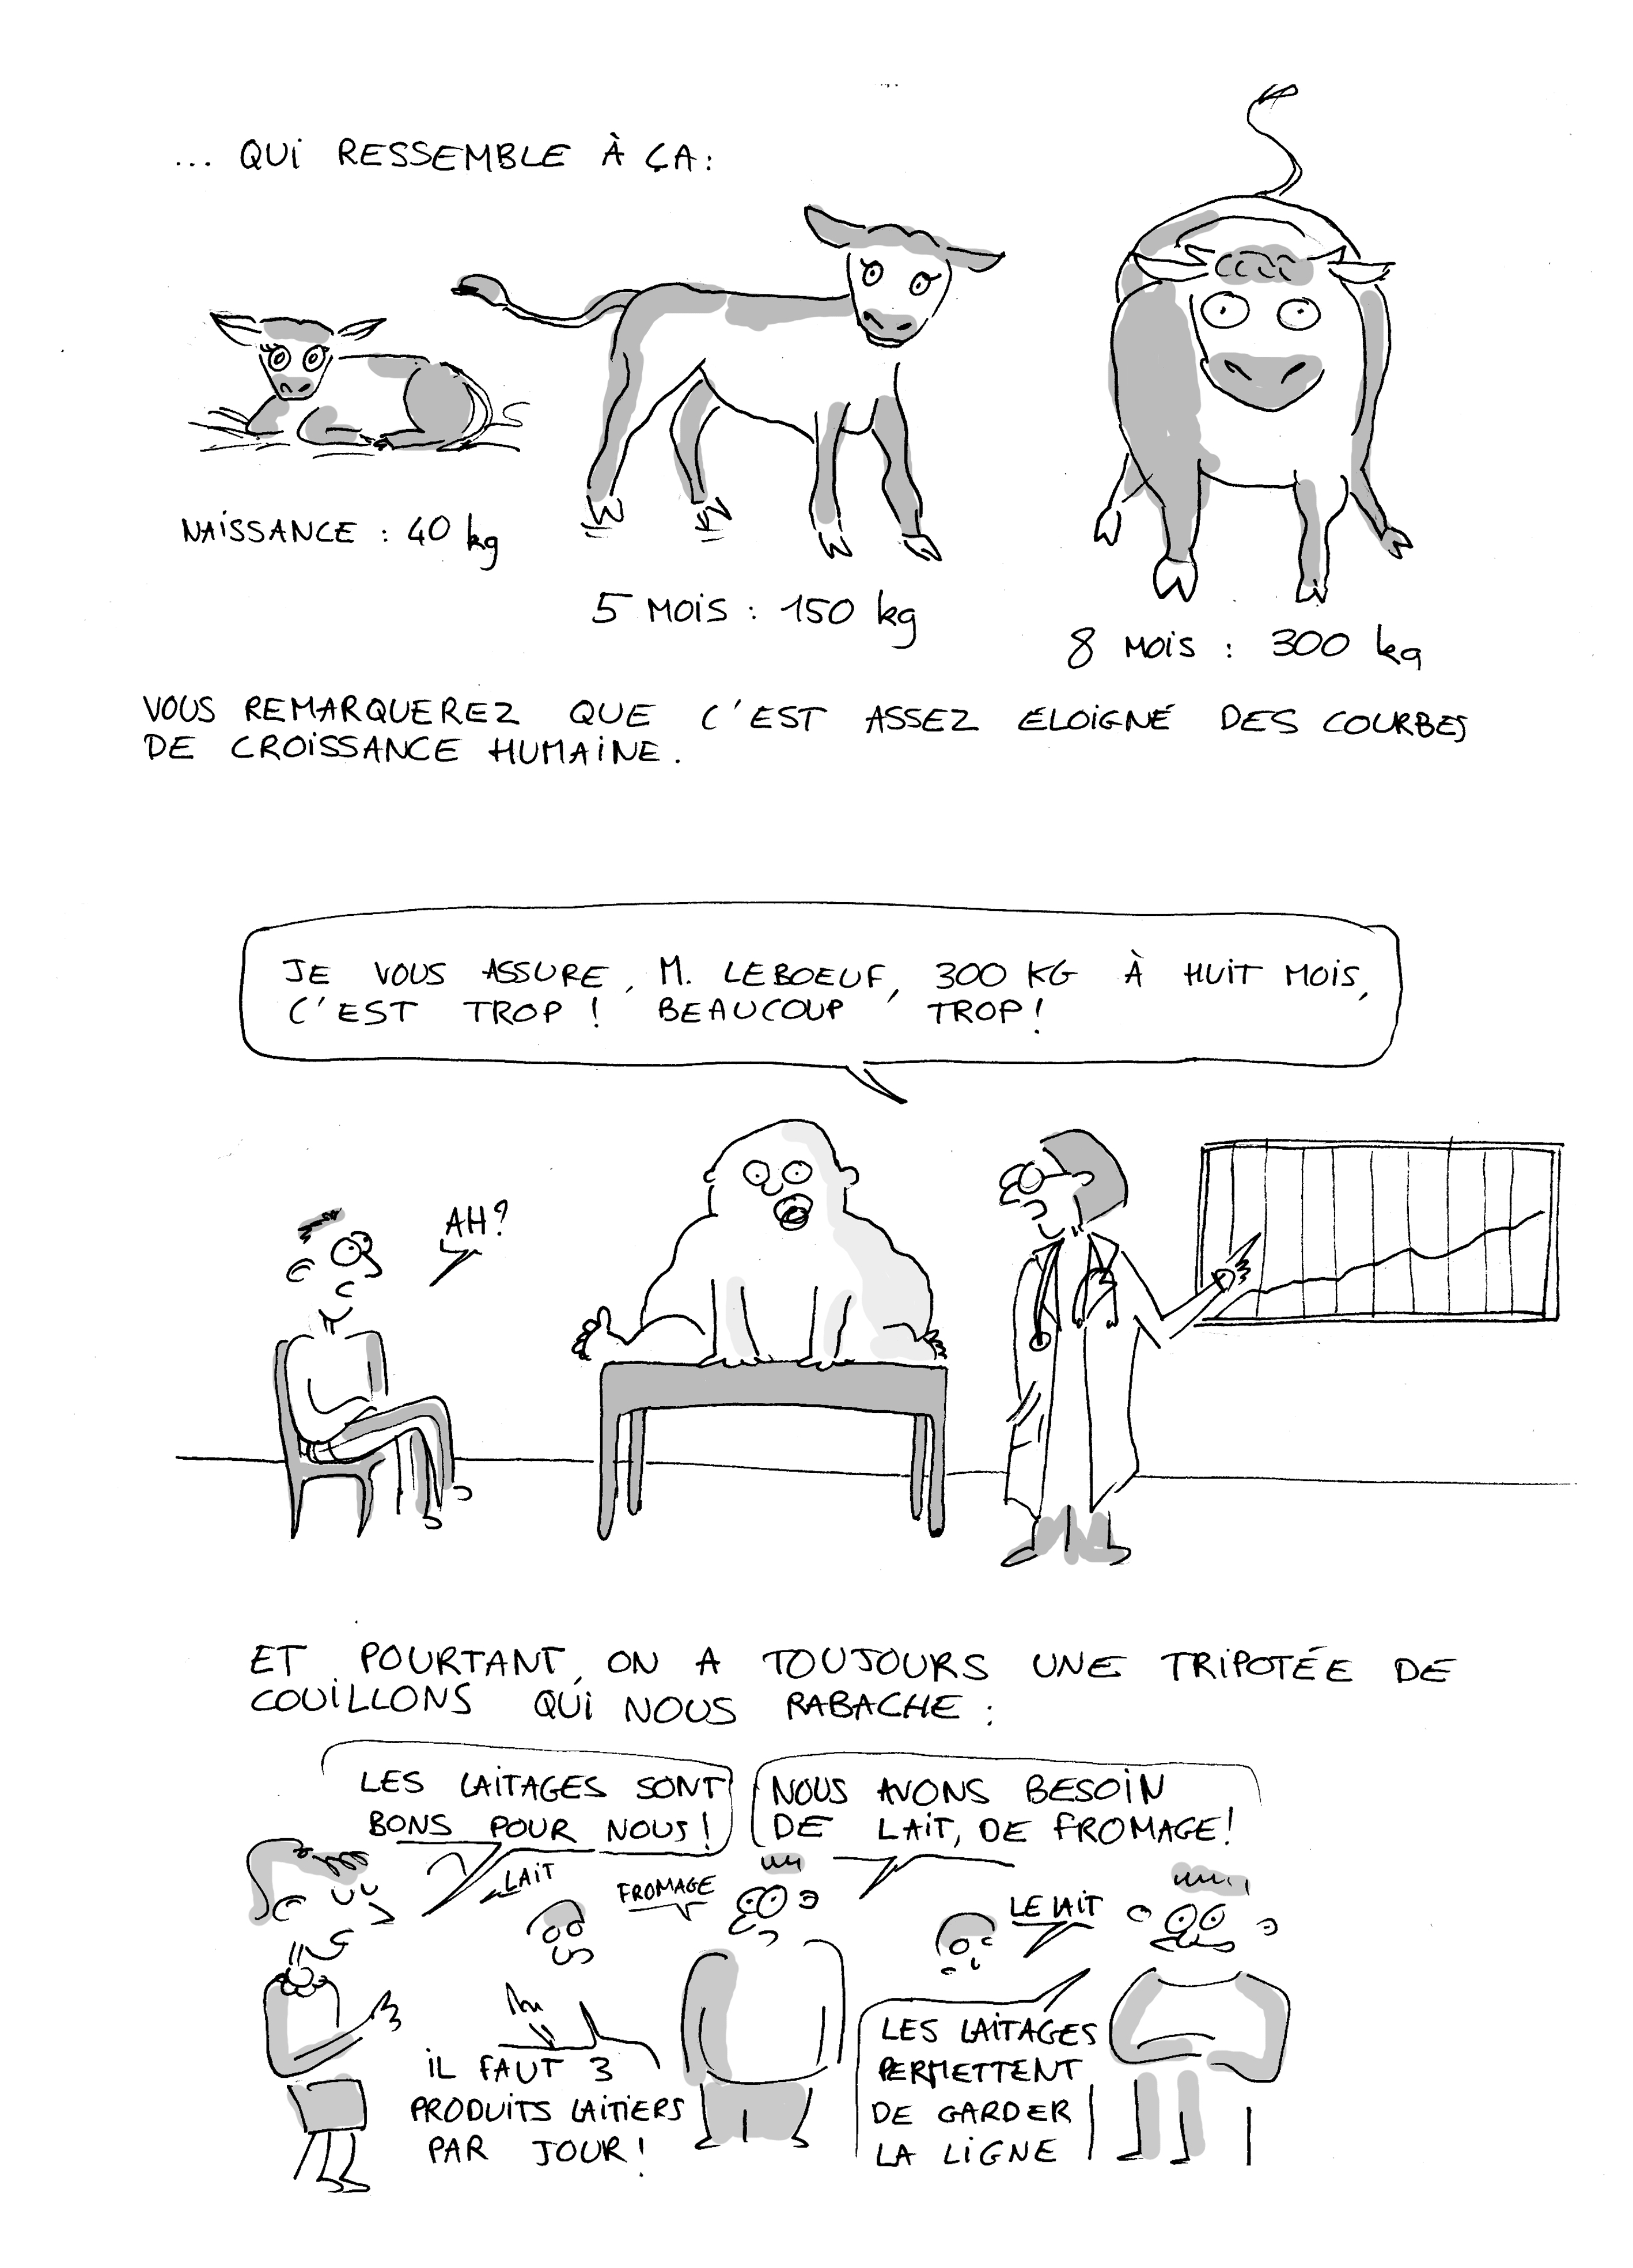 ... QUI RESSEMBLE À ÇA:
NAISSANCE : 40 kg
5 MOIS : 150 kg
8 MOIS : 300 kg
VOUS REMARQUEREZ QUE C'EST ASSEZ ÉLOIGNÉ DES COURBES
DE CROISSANCE HUMAINE.
JE VOUS ASSURE, M. LEBOEUF, 300 KG À HUIT MOIS,
C'EST TROP! BEAUCOUP TROP!
AH?
ET POURTANT, ON A TOUJOURS UNE TRIPOTÉE DE
COUILLONS QUI NOUS RABACHE :
LES LAITAGES SONT
BONS POUR NOUS!
NOUS AVONS BESOIN
DE LAIT, DE FROMAGE!
LAIT
FROMAGE
LE LAIT
IL FAUT 3
PRODUITS LAITIERS
PAR JOUR!
LES LAITAGES
PERMETTENT
DE GARDER
LA LIGNE